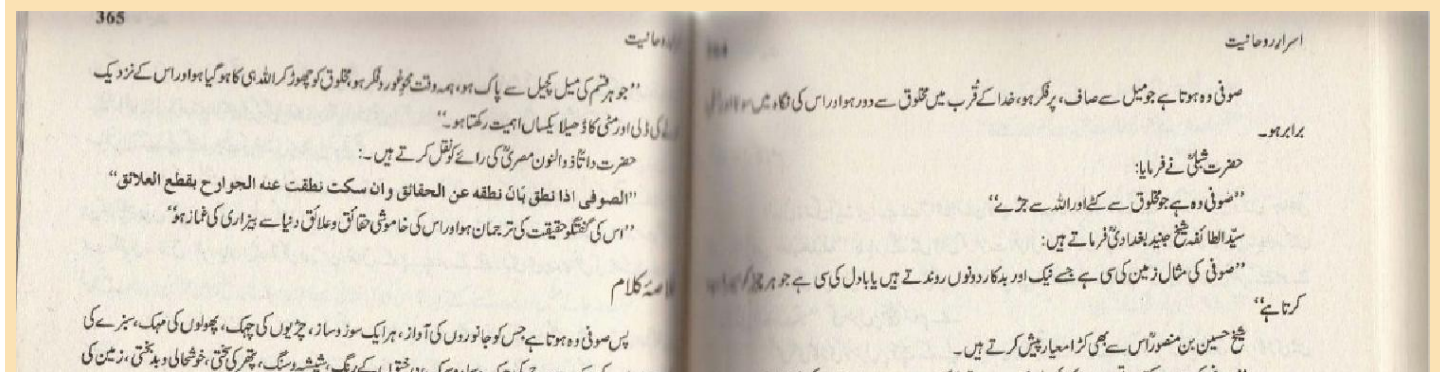 اسرارِ روحانیت
صوفی وہ ہوتا ہے جو میل سے صاف، پر فکر ہو، خدا کے قُرب میں مخلوق سے دور ہو اور اس کی نگاہ میں
برابر ہو۔
حضرت شبلیؒ نے فرمایا:
”صوفی وہ ہے جو مخلوق سے کٹے اور اللہ سے جڑے“
سیّد الطائفہ شیخ جنید بغدادیؒ فرماتے ہیں:
”صوفی کی مثال زمین کی سی ہے جسے نیک اور بدکار دونوں روندتے ہیں یا بادل کی سی ہے جو ہر چیز
کرتا ہے“
شیخ حسین بن منصورؒ اس سے بھی کڑا معیار پیش کرتے ہیں۔
365
روحانیت
”جو ہر قسم کی میل کچیل سے پاک ہو، ہمہ وقت محوِ غور و فکر ہو، مخلوق کو چھوڑ کر اللہ ہی کا ہو گیا ہو اور اس کے نزدیک
کی ڈلی اور مٹی کا ڈھیلا یکساں اہمیت رکھتا ہو۔“
حضرت داتاؒ ذوالنون مصریؒ کی رائے کو نقل کرتے ہیں۔:
”الصوفی اذا نطق بَانَ نطقه عن الحقائق وان سکت نطقت عنه الجوارح بقطع العلائق“
”اس کی گفتگو حقیقت کی ترجمان ہو اور اس کی خاموشی حقائق و علائقِ دنیا سے بیزاری کی غماز ہو“
کلام
پس صوفی وہ ہوتا ہے، جس کو جانوروں کی آواز، ہر ایک سوز و ساز، چڑیوں کی چہک، پھولوں کی مہک، سبزے کی
درختوں کے رنگ، شیشہ و سنگ، پتھر کی سختی، خوشحالی و بدبختی، زمین کی